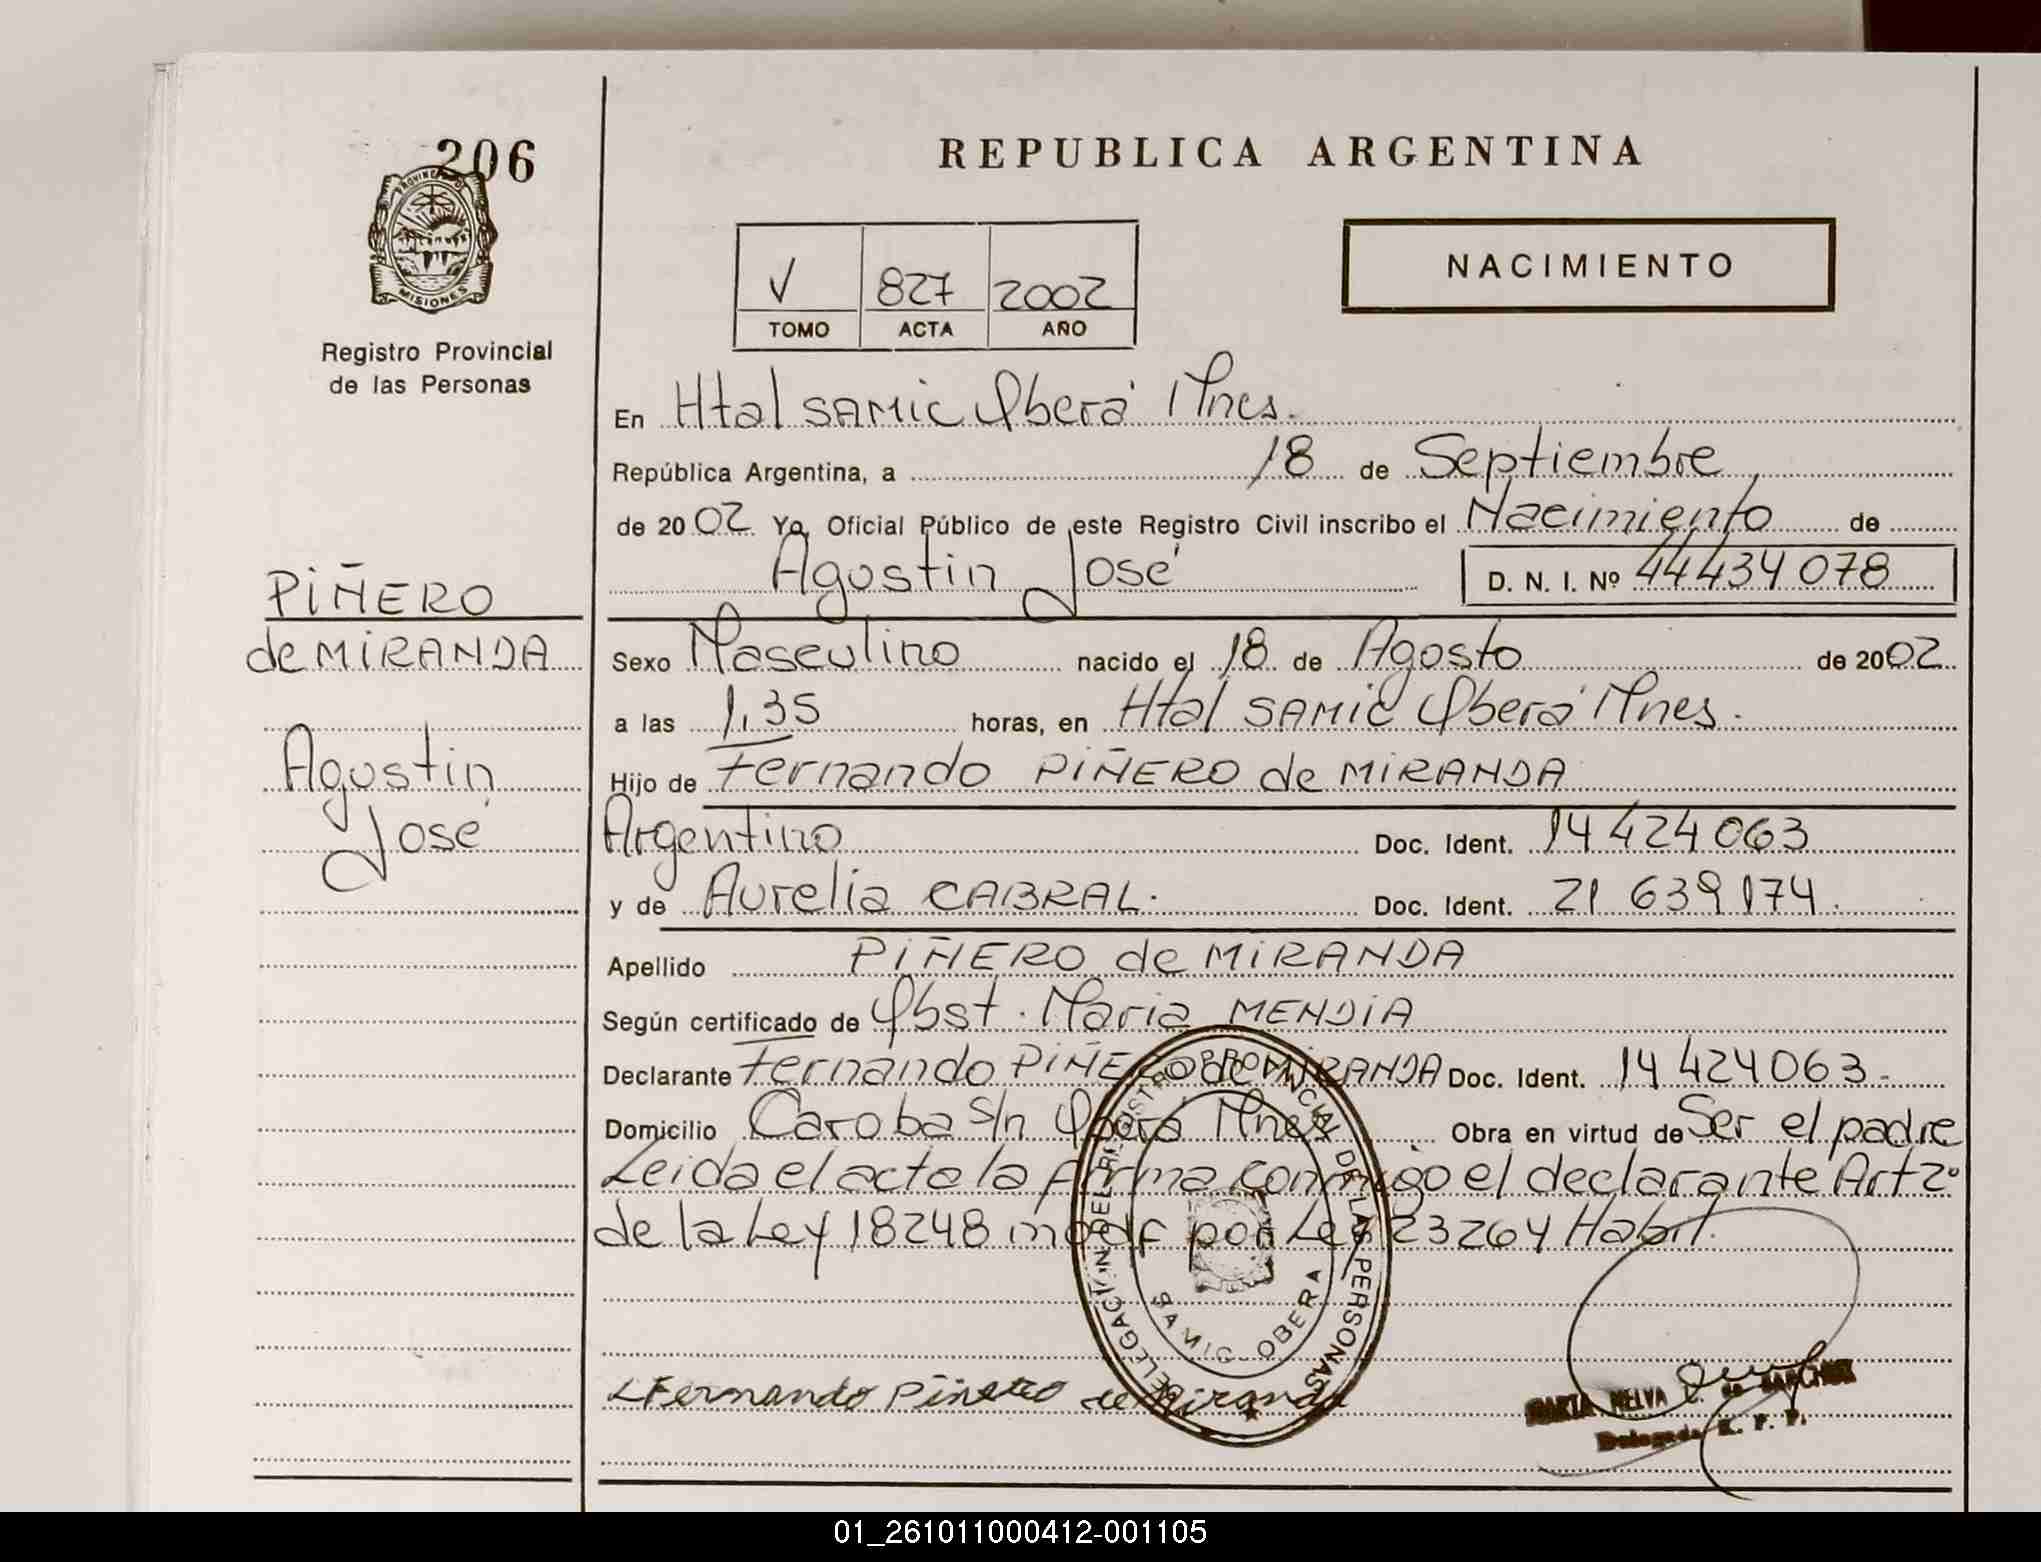 206
REPUBLICA ARGENTINA
PROVINCIA DE
MISIONES
Registro Provincial
de las Personas
V 827 2002
TOMO ACTA AÑO
NACIMIENTO
En Htal SAMIC Oberá Mnes.
República Argentina, a 18 de Septiembre
de 2002 Yo, Oficial Público de este Registro Civil inscribo el Nacimiento de
Agostin José D. N. I. Nº 44434078
PIÑERO
de MIRANDA
Agostin
José
Sexo Masculino nacido el 18 de Agosto de 2002
a las 1,35 horas, en Htal SAMIC Oberá Mnes.
Hijo de Fernando PIÑERO de MIRANDA
Argentino Doc. Ident. 14 424 063
y de Aurelia CABRAL. Doc. Ident. 21 639 174.
Apellido PIÑERO de MIRANDA
Según certificado de Obst. Maria MENDIA
Declarante Fernando PIÑERO de MIRANDA Doc. Ident. 14 424 063.
Domicilio Caroba S/n Oberá Mnes Obra en virtud de Ser el padre
Leida el acta la firma conmigo el declarante Art 2º
de la Ley 18248 modf por Ley 23264 Habil.
DELEGACION DEL REGISTRO PROVINCIAL DE LAS PERSONAS
SAMIC - OBERA
Fernando Piñero de Miranda
MARTA MELVA de SANCHEZ
Delegada R. P. P.
01_261011000412-001105